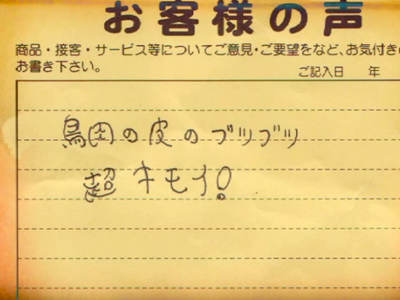 お客様の声
商品・接客・サービス等についてご意見・ご要望をなど、お気付き
お書き下さい。
ご記入日 年
鳥肉の皮のブツブツ
超キモイ!